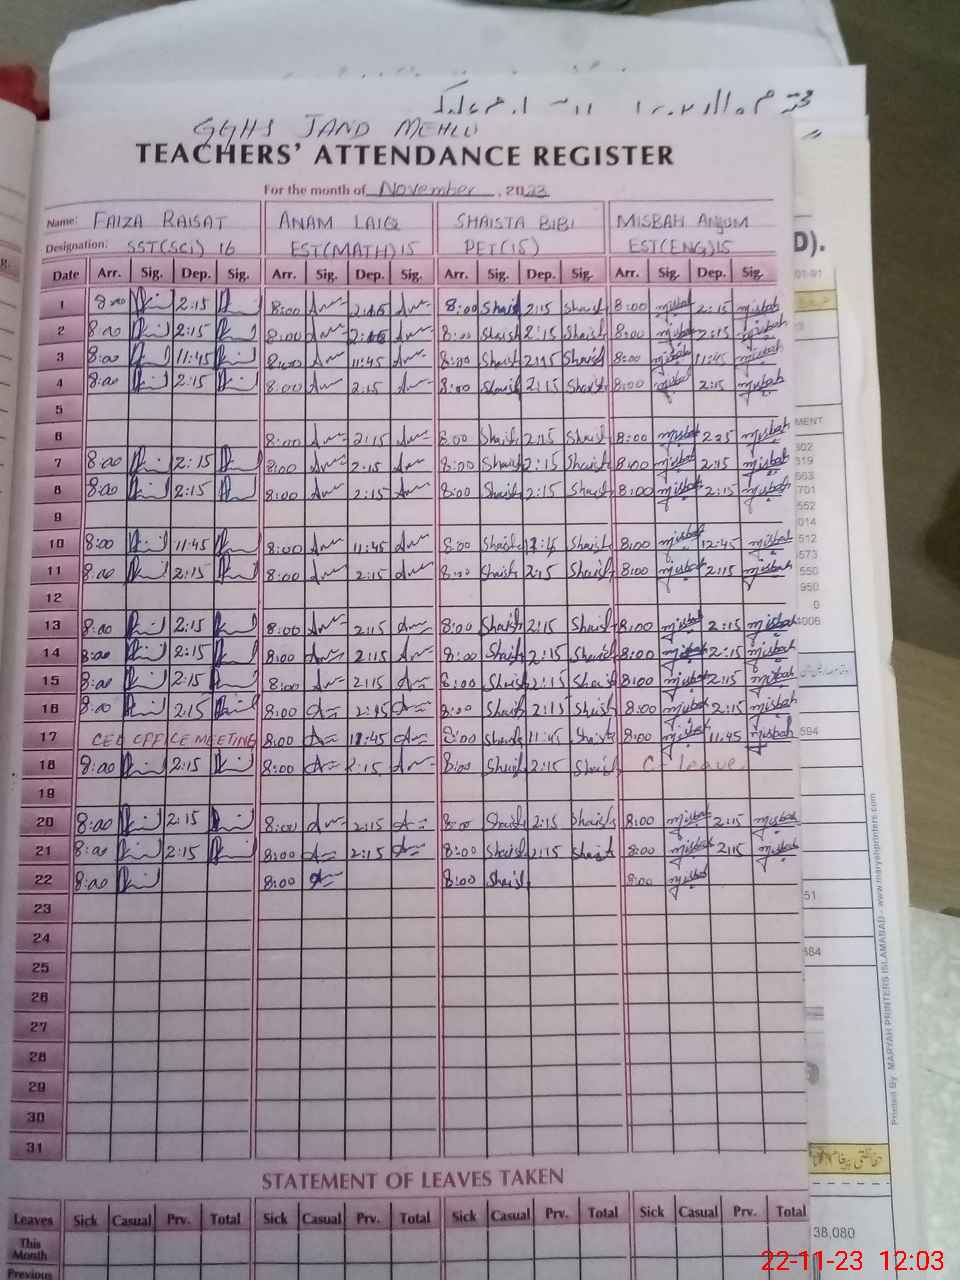 GGHS JAND MEHLU
TEACHERS' ATTENDANCE REGISTER
For the month of November, 2023
Name: FAIZA RAISAT ANAM LAIQ SHAISTA BIBI MISBAH ANJUM
Designation: SST(SCI) 16 EST(MATH)15 PET(15) EST(ENG)15
Date Arr. Sig. Dep. Sig. Arr. Sig. Dep. Sig. Arr. Sig. Dep. Sig. Arr. Sig. Dep. Sig.
1 8:00 2:15 8:00 2:15 8:00 Shaist 2:15 Shaist 8:00 misbah 2:15 misbah
2 8:00 2:15 8:00 2:15 8:00 Shaist 2:15 Shaist 8:00 misbah 2:15 misbah
3 8:00 11:45 8:00 11:45 8:00 Shaist Shaist 8:00 misbah 11:45 misbah
4 8:00 2:15 8:00 2:15 8:00 Shaist 2:15 Shaist 8:00 misbah 2:15 misbah
5
6 8:00 2:15 8:00 Shaist 2:15 Shaist 8:00 misbah misbah
7 8:00 2:15 8:00 2:15 8:00 Shaist 2:15 Shaist 8:00 misbah 2:15 misbah
8 8:00 2:15 8:00 2:15 8:00 Shaist 2:15 Shaist 8:00 misbah 2:15 misbah
9
10 8:00 11:45 8:00 11:45 8:00 Shaist Shaist 8:00 misbah 12:45 misbah
11 8:00 2:15 8:00 2:15 8:00 Shaist 2:15 Shaist 8:00 misbah 2:15 misbah
12
13 8:00 2:15 8:00 2:15 8:00 Shaist 2:15 Shaist 8:00 misbah 2:15 misbah
14 8:00 2:15 8:00 2:15 8:00 Shaist 2:15 Shaist 8:00 misbah 2:15 misbah
15 8:00 2:15 8:00 2:15 8:00 Shaist 2:15 Shaist 8:00 misbah 2:15 misbah
16 8:00 2:15 8:00 8:00 Shaist 2:15 Shaist 8:00 misbah 2:15 misbah
17 MEETING 8:00 11:45 8:00 Shaist 11:45 Shaist 8:00 misbah 11:45 misbah
18 8:00 2:15 8:00 2:15 8:00 Shaist 2:15 Shaist C- leave
19
20 8:00 2:15 8:00 2:15 8:00 Shaist 2:15 Shaist 8:00 misbah 2:15 misbah
21 8:00 2:15 8:00 2:15 8:00 Shaist 2:15 Shaist 8:00 misbah 2:15 misbah
22 8:00 8:00 8:00 Shaist 8:00 misbah
23
24
25
26
27
28
29
30
31
STATEMENT OF LEAVES TAKEN
Leaves Sick Casual Prv. Total Sick Casual Prv. Total Sick Casual Prv. Total Sick Casual Prv. Total
This Month
Previous
D).
MENT
302
319
563
701
552
014
512
573
550
950
0
4006
594
51
384
38,080
Printed By MARYAH PRINTERS ISLAMABAD - www.maryahprinters.com
22-11-23 12:03